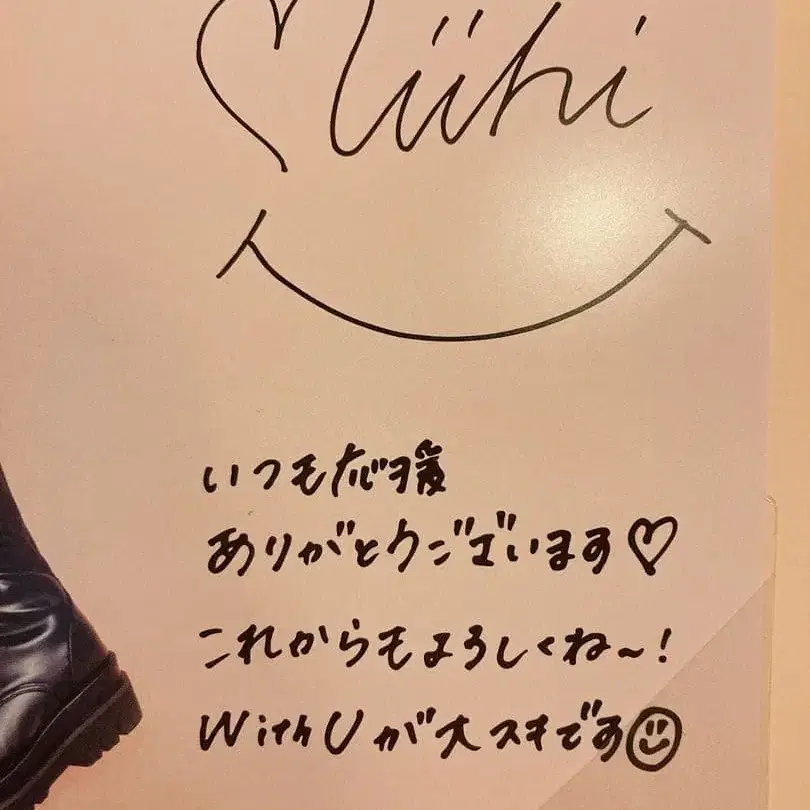 いつも応援
ありがとうございます♡
これからもよろしくね〜!
WithUが大スキです☺